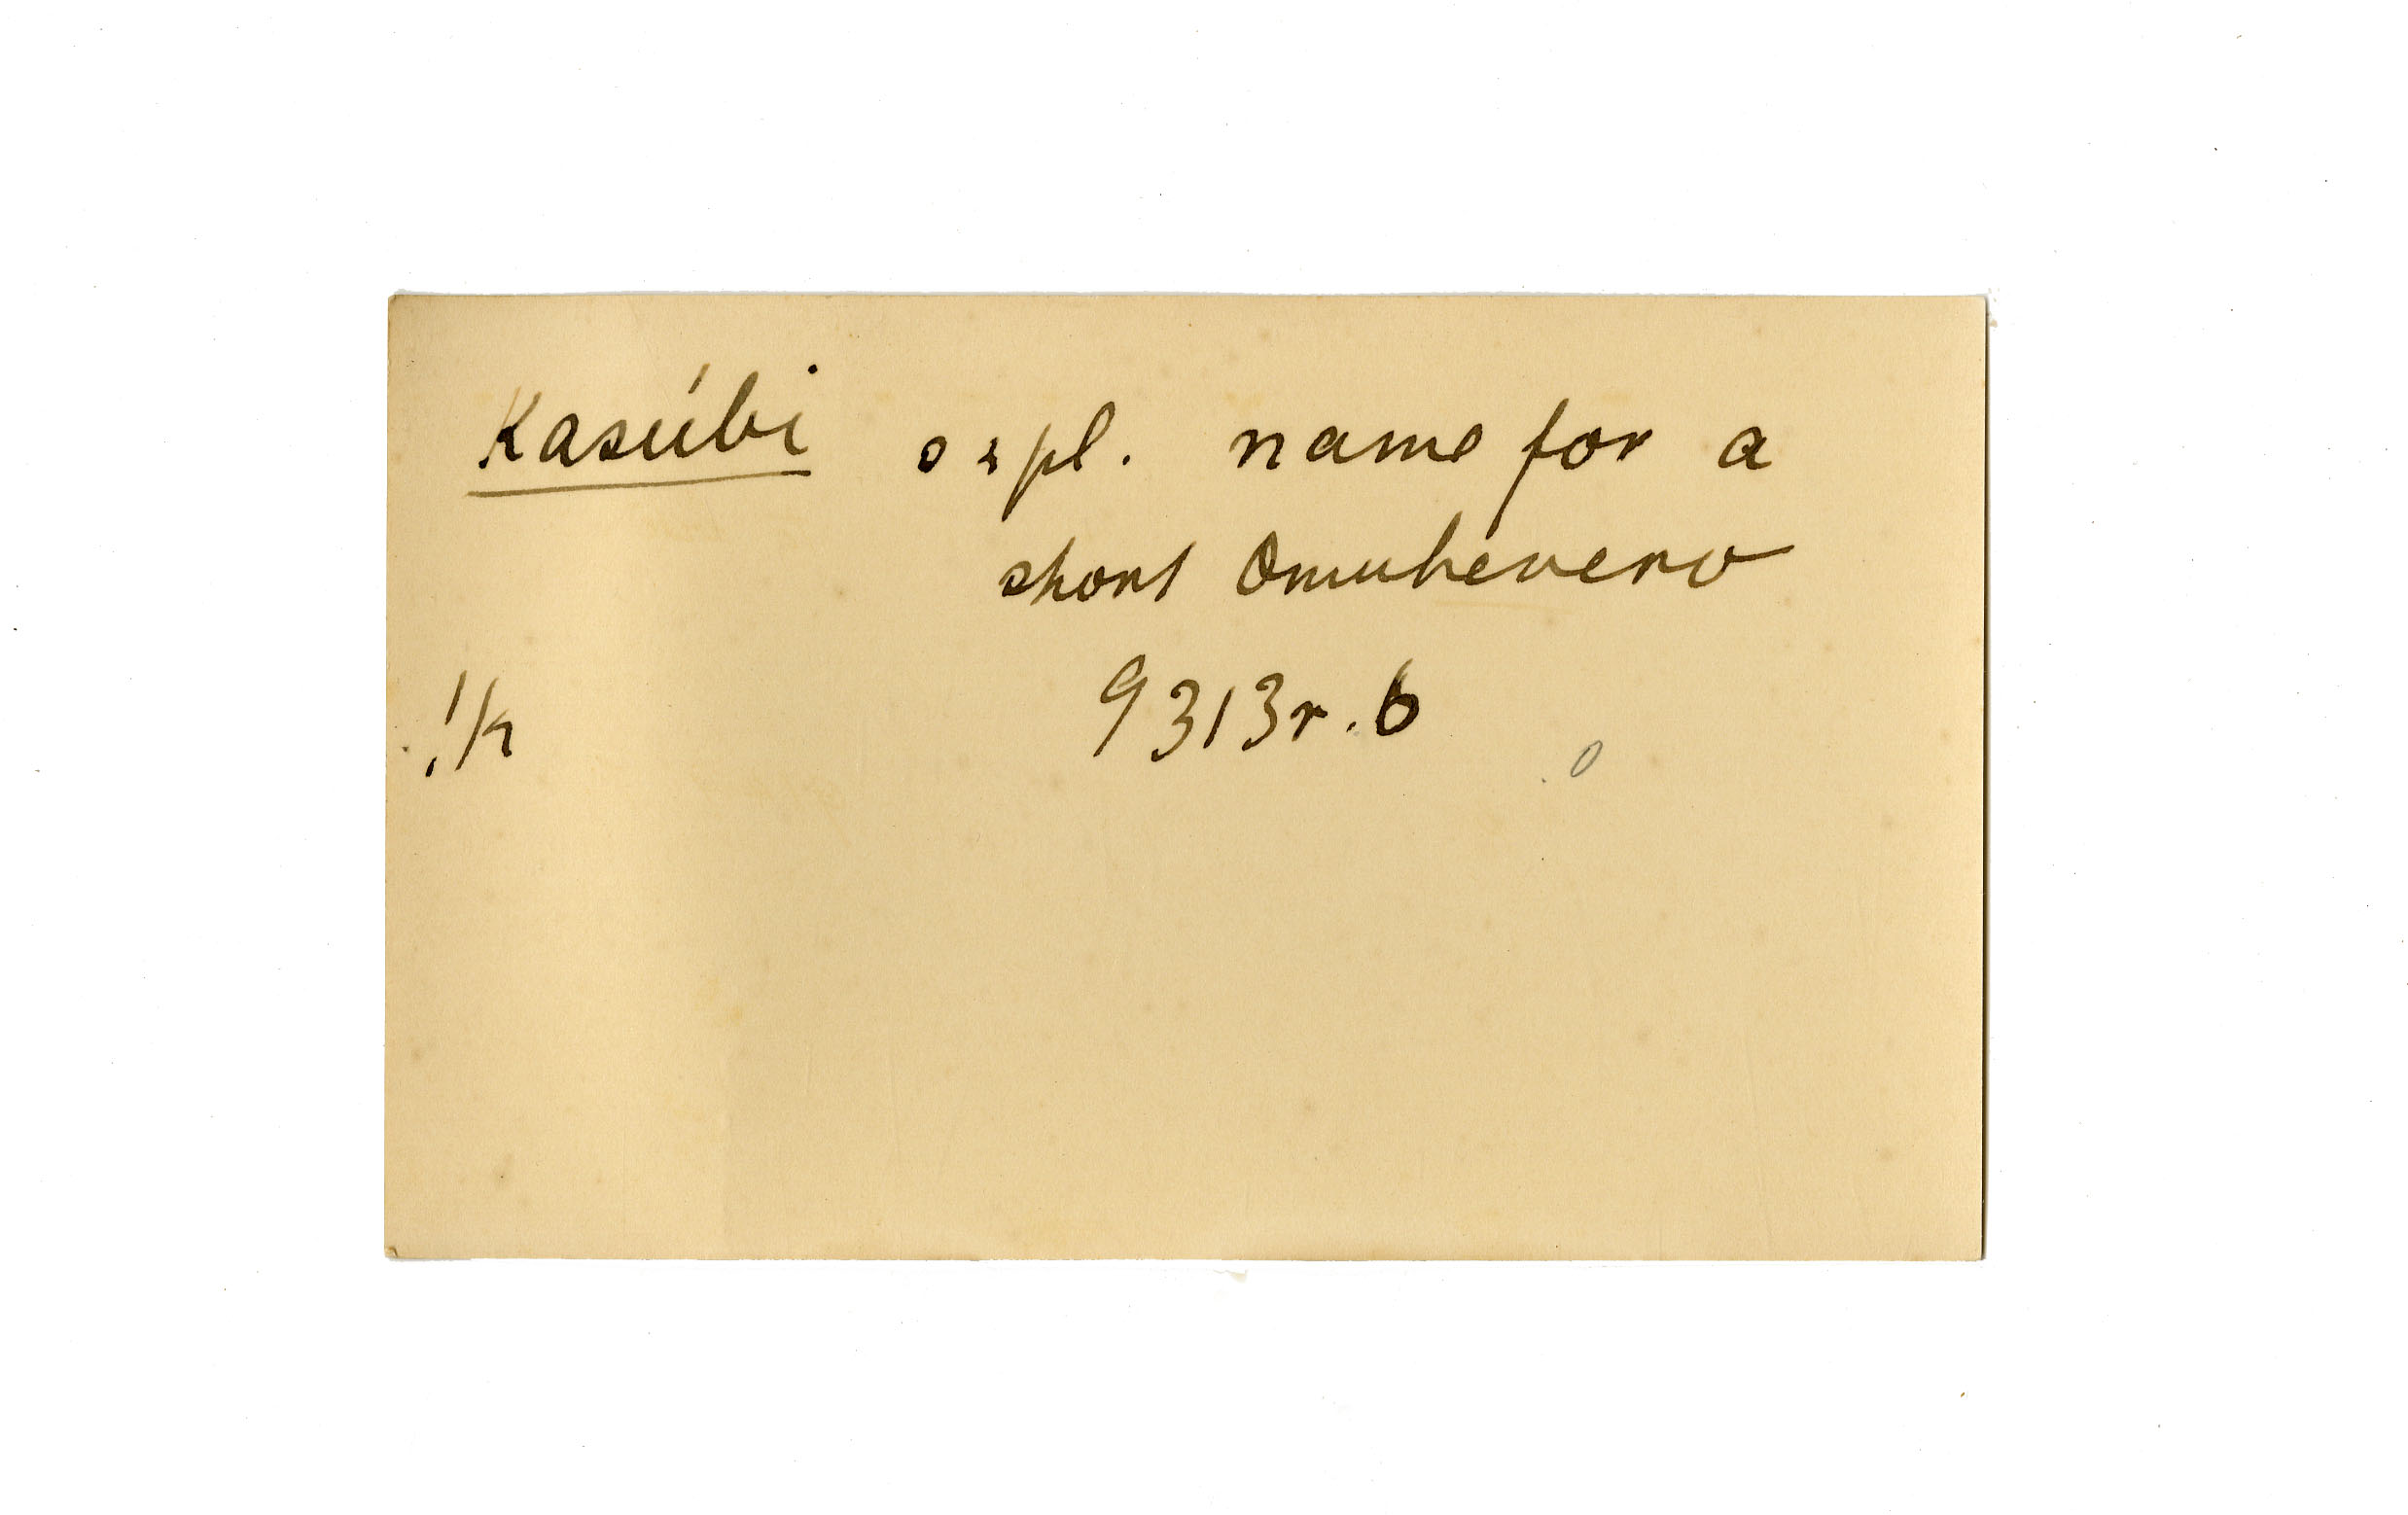 Kasúbi s & pl. name for a
short Omuhevero
!k 9313r.6